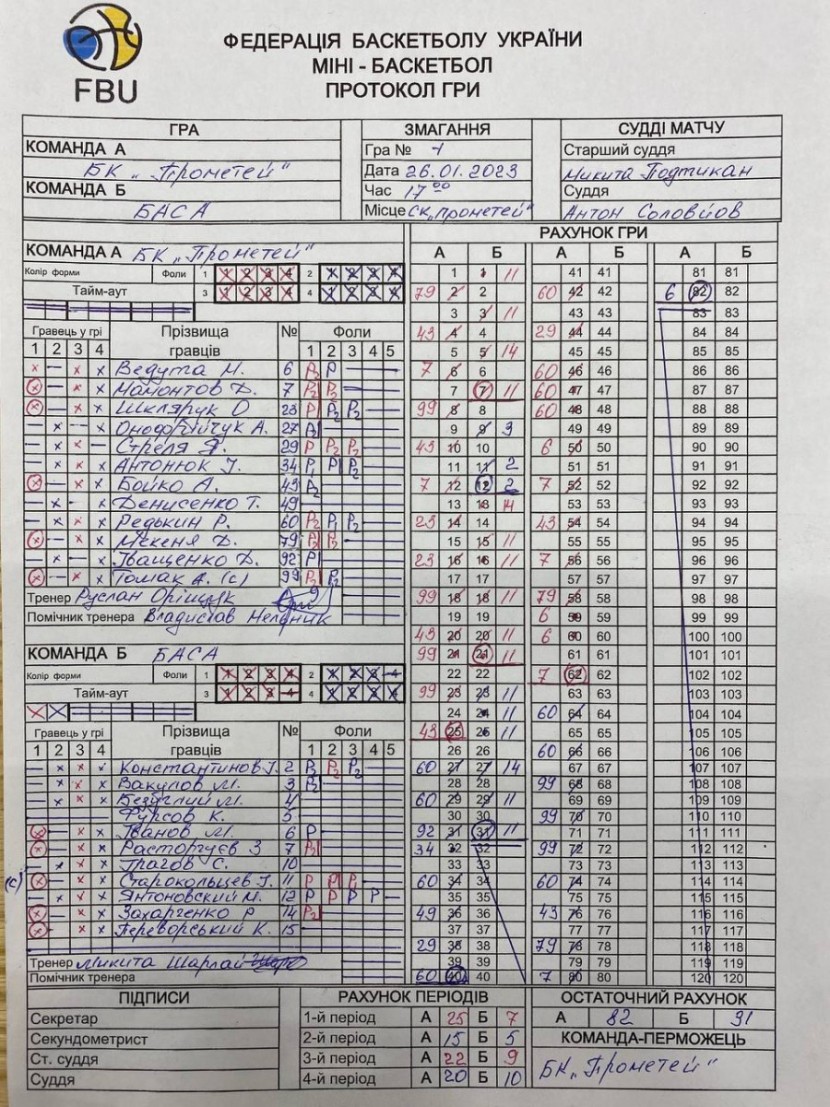 FBU
ФЕДЕРАЦІЯ БАСКЕТБОЛУ УКРАЇНИ
МІНІ - БАСКЕТБОЛ
ПРОТОКОЛ ГРИ
ГРА
КОМАНДА А
БК „Прометей"
КОМАНДА Б
БАСА
ЗМАГАННЯ
Гра № 1
Дата 26.01.2023
Час 17 00
Місце СК „Прометей"
СУДДІ МАТЧУ
Старший суддя
Микита Подтикан
Суддя
Антон Соловйов
КОМАНДА А БК „Прометей"
Колір форми Фоли 1 1 2 3 4 2 1 2 3 4
Тайм-аут 3 1 2 3 4 4 1 2 3 4
Гравець у грі Прізвища гравців № Фоли
1 2 3 4 1 2 3 4 5
Ведута М. 6
Мамонтов Д. 7
Шклярук О 23
А. 27
Стреля Я. 29
Антонюк І. 34
Бойко А. 43
Денисенко Т. 49
Редькин Р. 60
Мекеня Д. 79
Іващенко Д. 92
Томак А. (с) 99
Тренер Руслан Оріщук
Помічник тренера Владислав
КОМАНДА Б БАСА
Колір форми Фоли 1 1 2 3 4 2 1 2 3 4
Тайм-аут 3 1 2 3 4 4 1 2 3 4
Гравець у грі Прізвища гравців № Фоли
1 2 3 4 1 2 3 4 5
Константинов І. 2
Вакулов М. 3
Безуглий М. 4
Фурсов К. 5
Іванов М. 6
Расторгуєв З 7
Трагов С. 10
(с) Старокольцев І. 11
Янтоновский М. 12
Захарченко Р 14
Переворський К. 15
Тренер Микита Шарлай
Помічник тренера
РАХУНОК ГРИ
А Б А Б А Б
1 1 11 41 41 81 81
79 2 2 60 42 42 6 82 82
3 3 11 43 43 83 83
43 4 4 29 44 44 84 84
5 5 14 45 45 85 85
7 6 6 60 46 46 86 86
7 7 11 60 47 47 87 87
99 8 8 60 48 48 88 88
9 9 3 49 49 89 89
43 10 10 6 50 50 90 90
11 11 2 51 51 91 91
7 12 12 2 7 52 52 92 92
13 13 14 53 53 93 93
23 14 14 43 54 54 94 94
15 15 11 55 55 95 95
23 16 16 11 7 56 56 96 96
17 17 57 57 97 97
99 18 18 11 79 58 58 98 98
19 19 6 59 59 99 99
43 20 20 11 6 60 60 100 100
99 21 21 11 61 61 101 101
22 22 7 62 62 102 102
99 23 23 11 63 63 103 103
24 24 11 60 64 64 104 104
43 25 25 11 65 65 105 105
26 26 60 66 66 106 106
60 27 27 14 67 67 107 107
28 28 99 68 68 108 108
60 29 29 11 69 69 109 109
30 30 99 70 70 110 110
92 31 31 11 71 71 111 111
34 32 32 99 72 72 112 112
33 33 73 73 113 113
60 34 34 60 74 74 114 114
35 35 75 75 115 115
49 36 36 43 76 76 116 116
37 37 77 77 117 117
29 38 38 79 78 78 118 118
39 39 79 79 119 119
60 40 40 7 80 80 120 120
ПІДПИСИ
Секретар
Секундометрист
Ст. суддя
Суддя
РАХУНОК ПЕРІОДІВ
1-й період А 25 Б 7
2-й період А 15 Б 5
3-й період А 22 Б 9
4-й період А 20 Б 10
ОСТАТОЧНИЙ РАХУНОК
А 82 Б 31
КОМАНДА-ПЕРМОЖЕЦЬ
БК „Прометей"